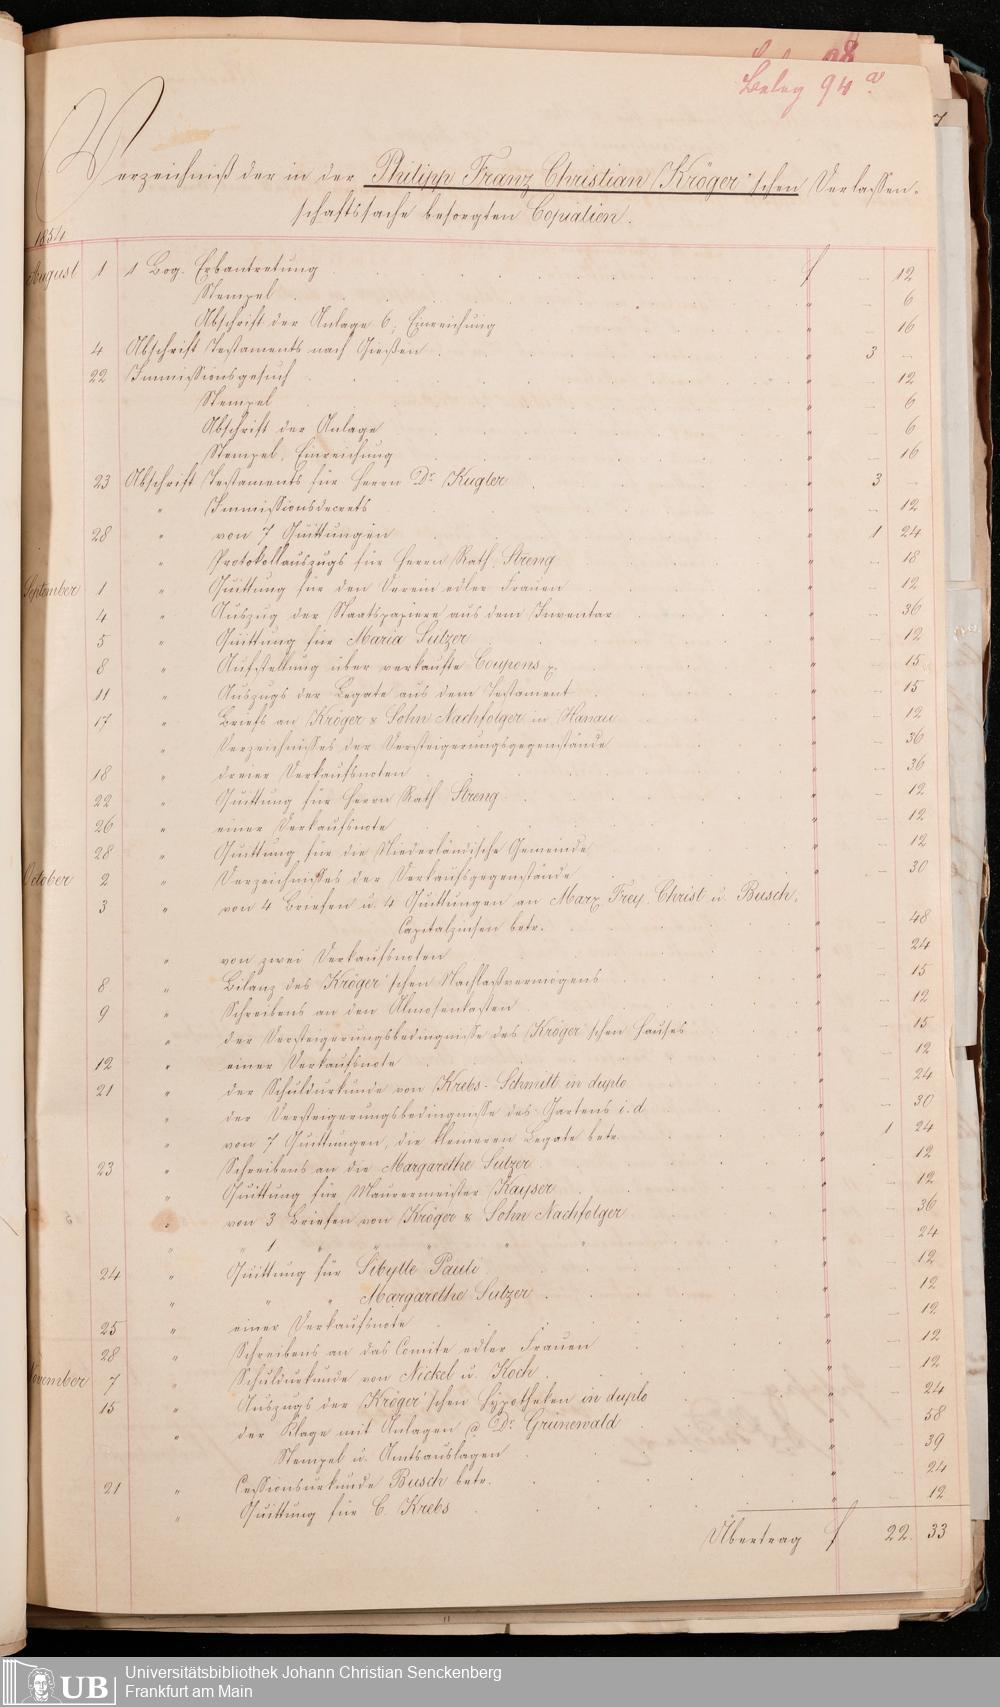 98
Beleg 94 a.
Verzeichniß der in der Philipp Franz Christian Kröger'schen Verlassen-
schaftssache besorgten Copialien.
1854
August 1 1 Bog. Erbantretung f — 12
Stempel " — 6
Abschrift der Anlage 6, Einreichung " — 16
4 Abschrift Testaments nach Gießen " 3 —
22 Immissionsgesuch " — 12
Stempel " — 6
Abschrift der Anlage " — 6
Stempel, Einreichung " — 16
23 Abschrift Testaments für Herrn Dr. Kugler " 3 —
" Immissionsdecrets " — 12
28 " von 7 Quittungen " 1 24
" Protokollauszugs für Herrn Rath Streng " — 18
September 1 " Quittung für den Verein edler Frauen " — 12
4 " Auszug der Staatspapiere aus dem Inventar " — 36
5 " Quittung für Maria Sulzer " — 12
8 " Aufstellung über verkaufte Coupons " — 15
11 " Auszugs der Legate aus dem Testament " — 15
17 " Briefs an Kröger & Sohn Nachfolger in Hanau " — 12
" Verzeichnisses der Versteigerungsgegenstände " — 36
18 " dreier Verkaufsnoten " — 36
22 " Quittung für Herrn Rath Streng " — 12
26 " einer Verkaufsnote " — 12
28 " Quittung für die Niederländische Gemeinde " — 12
October 2 " Verzeichnisses der Verkaufsgegenstände " — 30
3 " von 4 Briefen u. 4 Quittungen an Marx, Frey, Christ u. Busch,
Capitalzinsen betr. " — 48
" von zwei Verkaufsnoten " — 24
8 " Bilanz des Kröger'schen Nachlaßvermögens " — 15
9 " Schreibens an den Almosenkasten " — 12
" der Versteigerungsbedingnisse des Kröger'schen Hauses " — 15
12 " einer Verkaufsnote " — 12
21 " der Schuldurkunde von Krebs-Schmitt in duplo " — 24
" der Versteigerungsbedingnisse des Gartens i. d " — 30
" von 7 Quittungen, die kleineren Legate betr. " 1 24
23 " Schreibens an die Margarethe Sulzer " — 12
" Quittung für Maurermeister Kayser " — 12
" von 3 Briefen von Kröger & Sohn Nachfolger " — 36
" " 1 " " " " " — 24
24 " Quittung für Sibylle Pauli " — 12
" " " Margarethe Sulzer " — 12
25 " einer Verkaufsnote " — 12
28 " Schreibens an das Comite edler Frauen " — 12
November 7 " Schuldurkunde von Nickel u. Koch " — 12
15 " Auszugs der Kröger'schen Hypotheken in duplo " — 24
" der Klage mit Anlagen Dr. Grünewald " — 58
Stempel u. Amtsauslagen " — 39
21 " Cessionsurkunde Busch betr. " — 24
" Quittung für C. Krebs " — 12
Übertrag f 22. 33
UB
Universitätsbibliothek Johann Christian Senckenberg
Frankfurt am Main